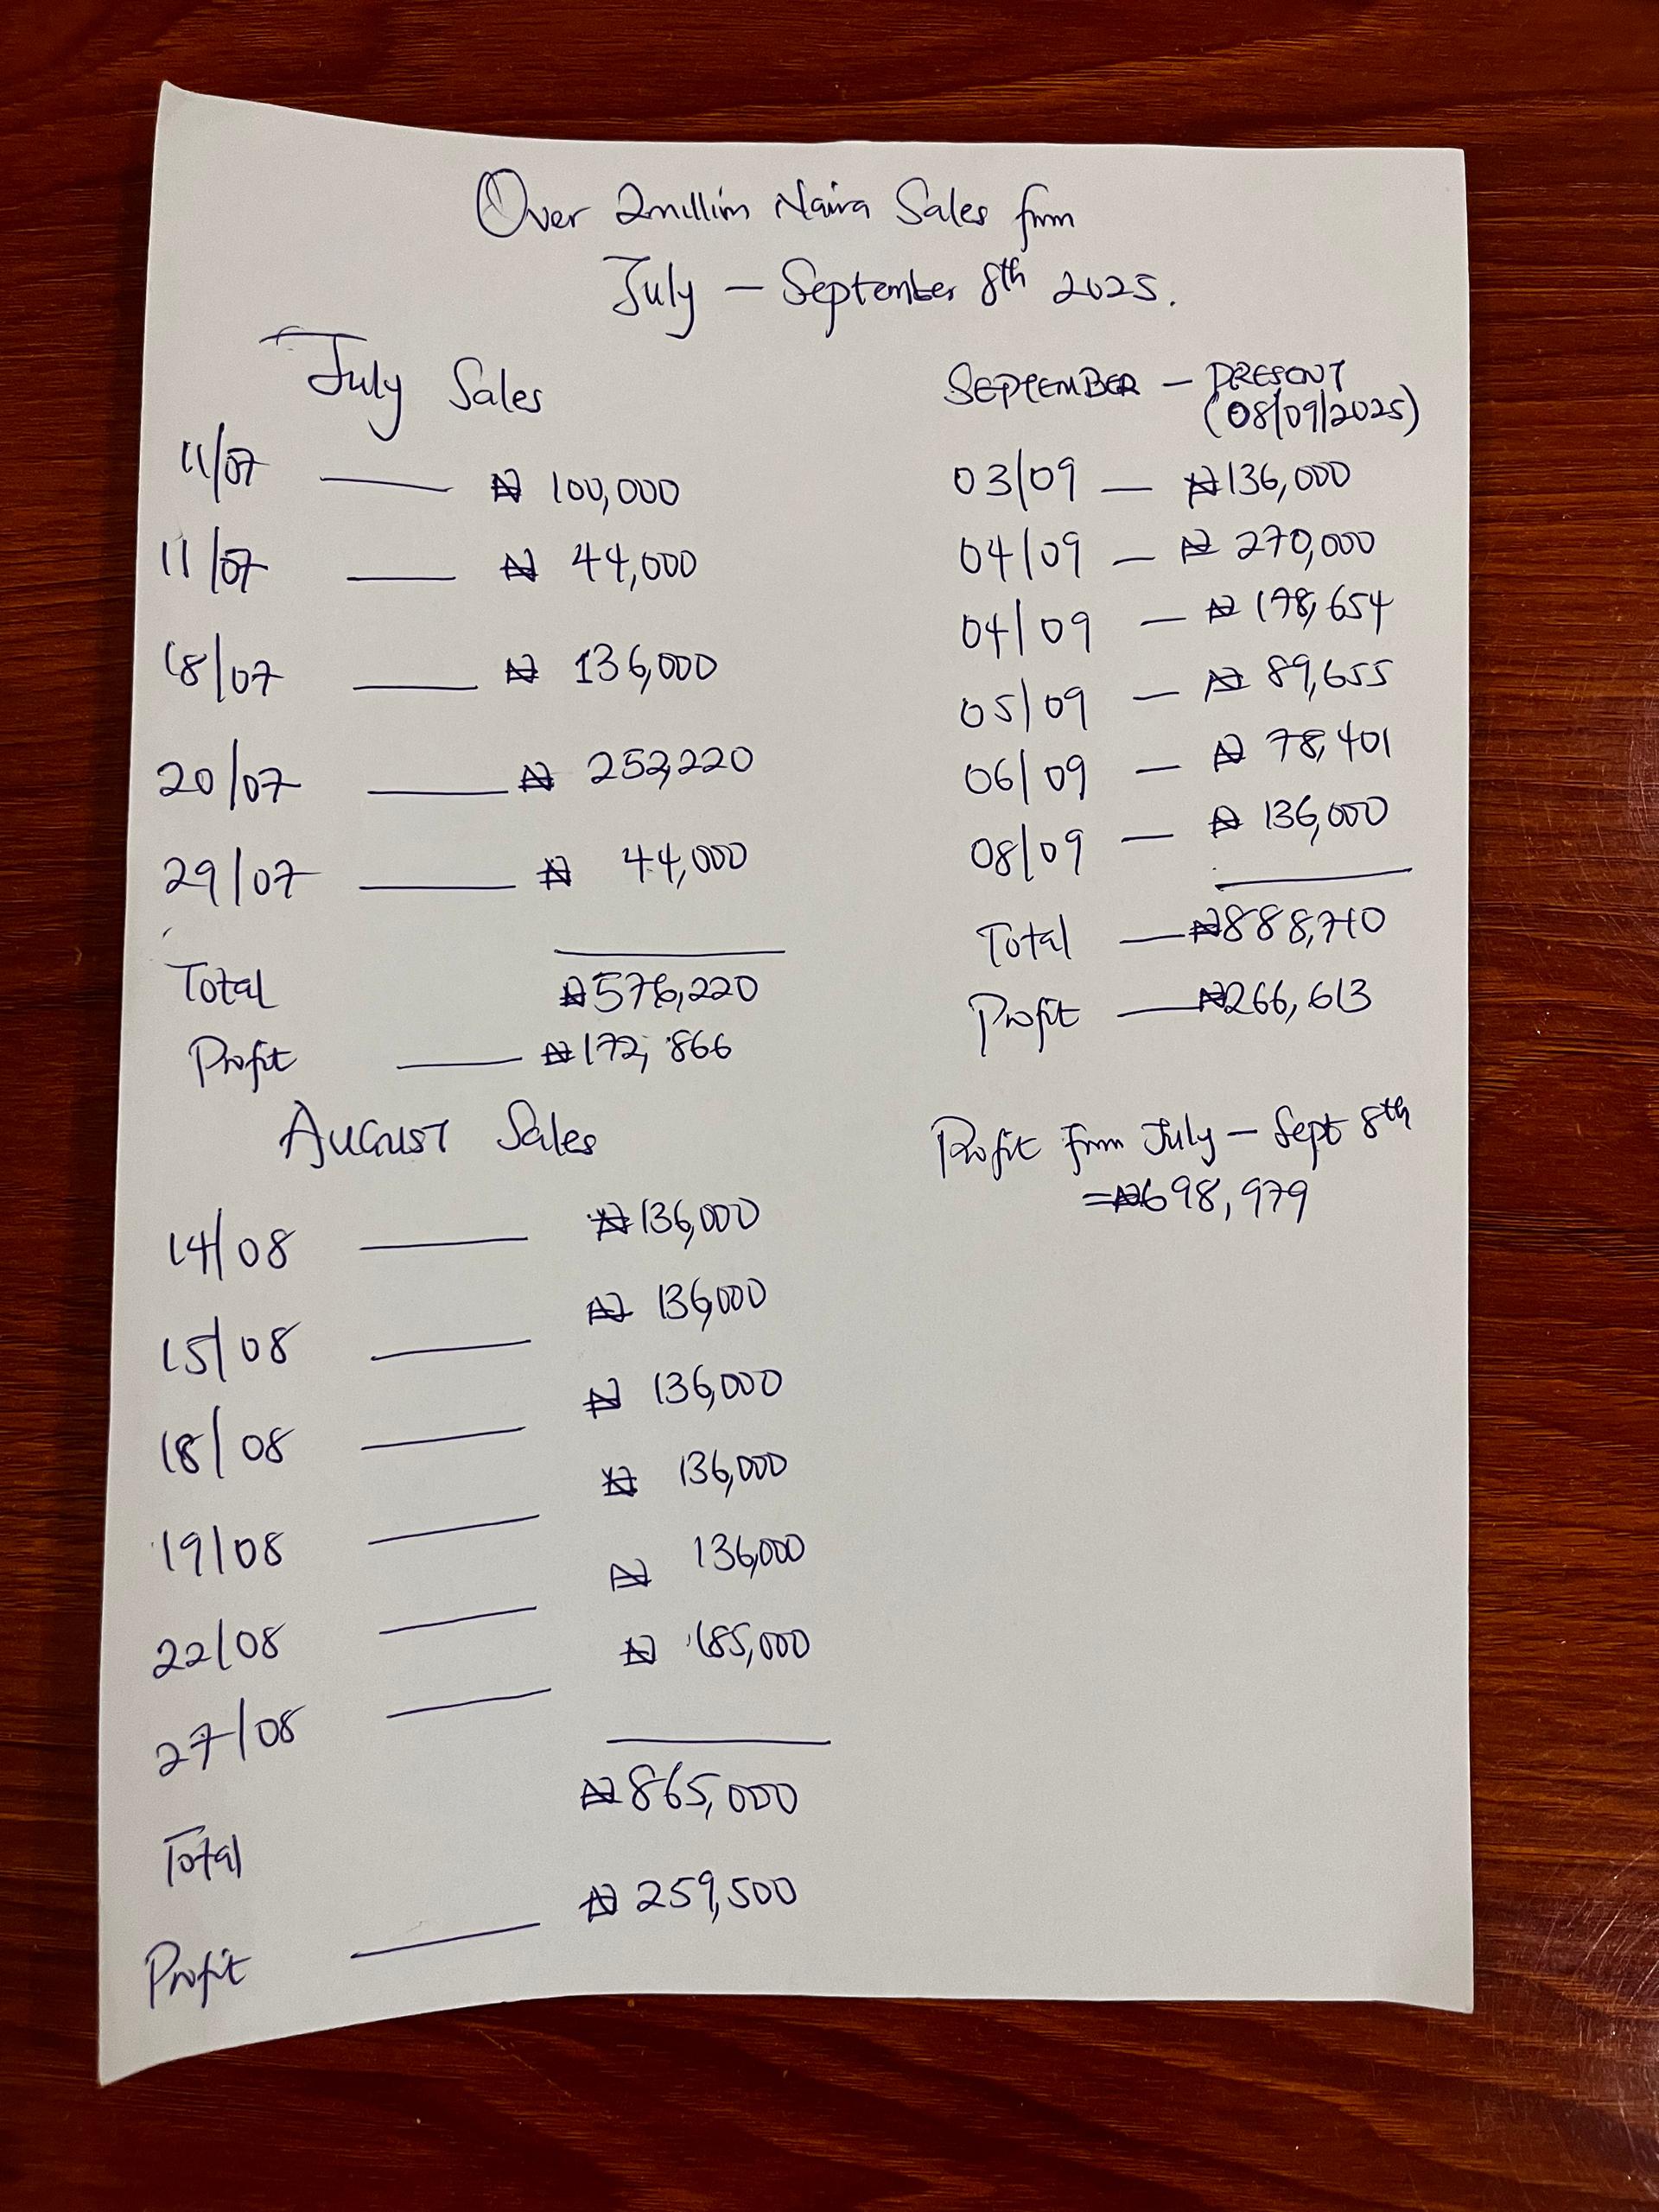 Over 2million Naira Sales from
July – September 8th 2025.
July Sales
11/07 — ₦ 100,000
11/07 — ₦ 44,000
18/07 — ₦ 136,000
20/07 — ₦ 252,220
29/07 — ₦ 44,000
Total ₦576,220
Profit — ₦172,866
AUGUST Sales
14/08 — ₦136,000
15/08 — ₦ 136,000
18/08 — ₦ 136,000
19/08 — ₦ 136,000
22/08 — ₦ 136,000
27/08 — ₦ 185,000
Total ₦865,000
Profit — ₦259,500
SEPTEMBER – PRESENT
(08/09/2025)
03/09 – ₦136,000
04/09 – ₦ 270,000
04/09 – ₦ 178,654
05/09 – ₦ 89,655
06/09 – ₦ 78,401
08/09 – ₦ 136,000
Total — ₦888,710
Profit — ₦266,613
Profit from July – Sept 8th
=₦698,979